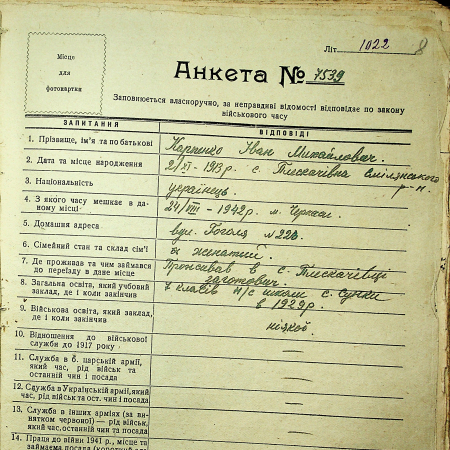 Літ. 1022 8
Місце
для
фотокартки
Анкета № 7539
Заповнюється власноручно, за неправдиві відомості відповідає по закону
військового часу
ЗАПИТАННЯ
ВІДПОВІДІ
1. Прізвище, ім'я та по батькові
Іван Михайлович.
2. Дата та місце народження
2/XI - 1913р. с. Плескачівка Смілянського
р-н.
3. Національність
українець.
4. З якого часу мешкає в да-
ному місці
24/VIII - 1942р. м. Черкаси.
5. Домашня адреса
вул. Гоголя № 228
6. Сімейний стан та склад сім'ї
женатий.
7. Де проживав та чим займався
до переїзду в дане місце
Проживав в с. Плескачівці
заготовач.
8. Загальна освіта, який учбовий
заклад, де і коли закінчив
7 класів н/с школи с. Сунки
в 1929р.
9. Військова освіта, який заклад,
де і коли закінчив
ніякої.
10. Відношення до військової
служби до 1917 року
—
11. Служба в б. царській армії,
який час, рід військ та
останній чин і посада
—
12. Служба в Українській армії, який
час, рід військ та ост. чин і посада
—
13. Служба в інших арміях (за ви-
нятком червоної) — рід військ,
який час, останній чин та посада
—
14. Праця до війни 1941 р., місце та